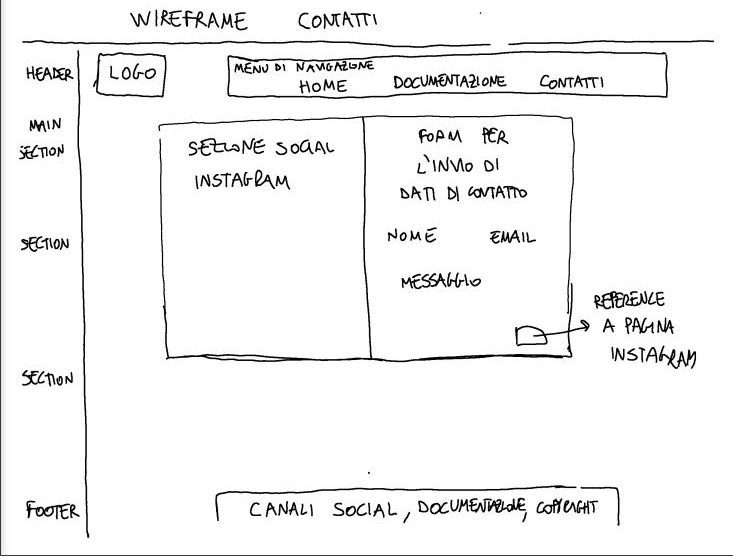 WIREFRAME CONTATTI
HEADER
LOGO
MENU DI NAVIGAZIONE
HOME DOCUMENTAZIONE CONTATTI
MAIN
SECTION
SEZIONE SOCIAL
INSTAGRAM
FORM PER
L'INVIO DI
DATI DI CONTATTO
NOME EMAIL
MESSAGGIO
SECTION
REFERENCE
A PAGINA
INSTAGRAM
SECTION
FOOTER
CANALI SOCIAL, DOCUMENTAZIONE, COPYRIGHT